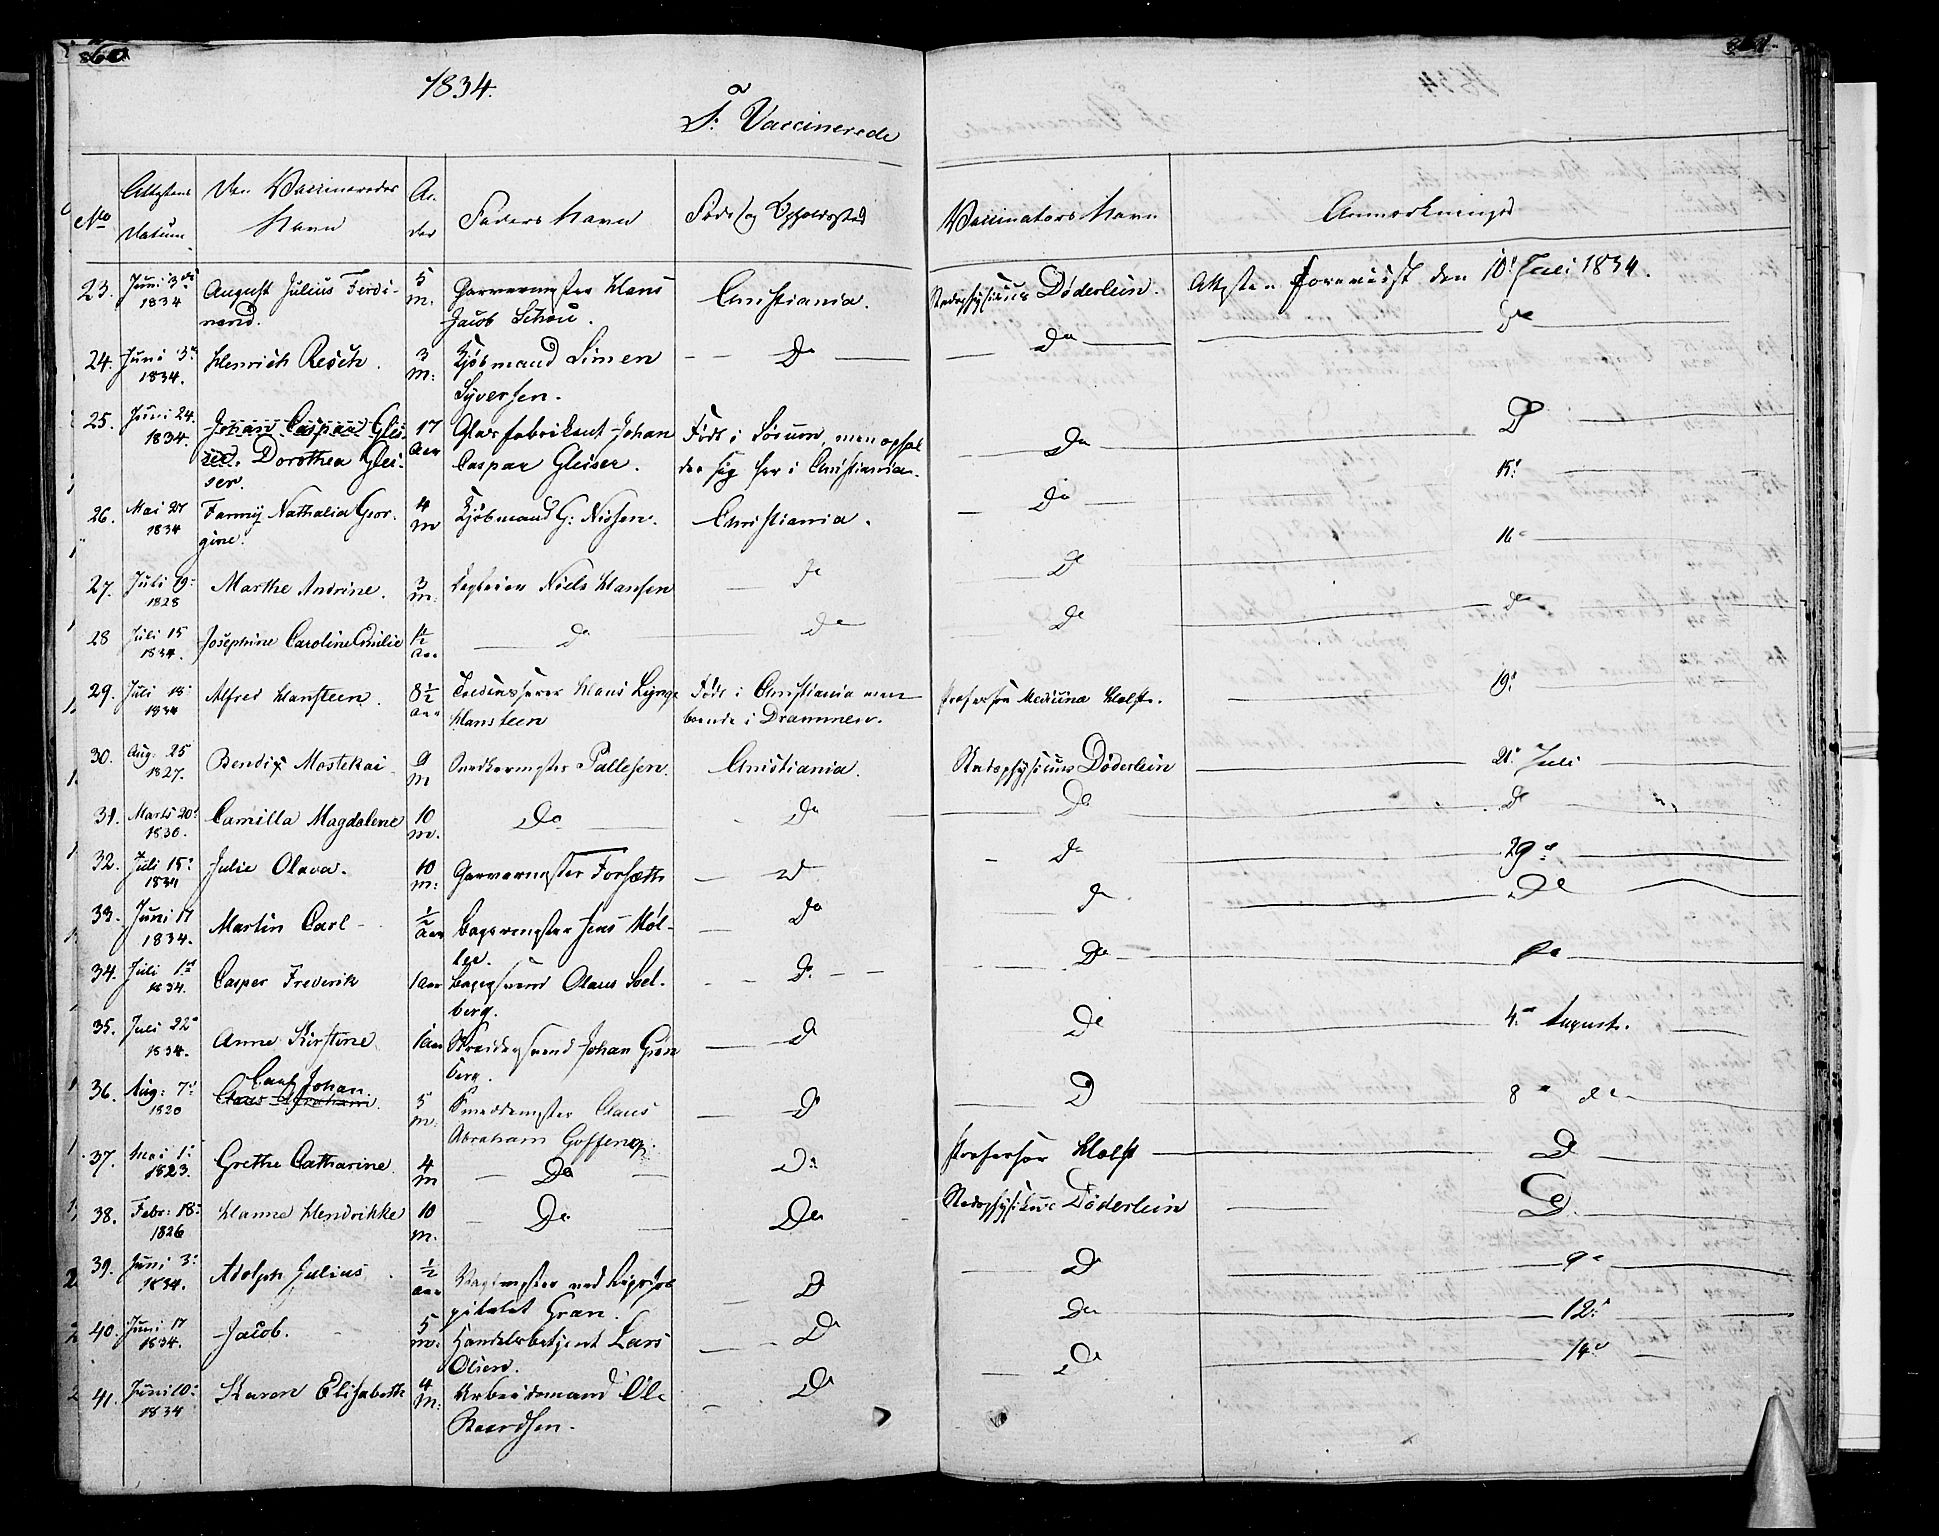 860
1834.
F: Vaccinerede
No
Attestens Datum
Den Vaccineredes Navn
Alder
Faders Navn
Føde og Opholdssted
Vaccinators Navn
Anmærkninger
23. Juni 3die 1834 August Julius Ferdinand. 5 m. Garvermester Hans Jacob Schou. Christiania. Stadsphysicus Döderlein. Attesten foreviist den 10d Juli 1834.
24. Juni 3d 1834. Henrich Resch. 3 m: Kjöbmand Simen Syversen. Do Do Do
25. Juni 24. 1834. Johan Caspar Gleiser. Dorothea Gleiser. 17 Aar Glasfabrikant Johan Caspar Gleiser. Född i Sörum, men ophol der sig her i Christiania. Do D
26. Mai 27 1834 Fanny Nathalia Georgine. 4 m Kjöbmand G: Nissen. Christiania. Do 15d
27. Juli 19: 1828 Marthe Andrine. 3 m: Niels Hansen do D 16
28 Juli 15 1834. Josephine Caroline Emilie 1½ Aar Do Do Do Do
29. Juli 18 1834 Alfred Hansteen. 8½ aar Hans Lynge Hansteen Född i Christiania men boende i Drammen. Professor Medicina Holst. 19d
30. Aug. 25 1827. Bendix Mostekai 9 m Snedkermester Pallesen. Christiania. Stadsphysicus Döderlein 21d Juli
31. Marts 20d 1830. Camilla Magdalene 10 m. Do Do D D
32. Juli 15d 1834 Julie Olava. 10 m: Garvermester Forsæth D Do 29d
33. Juni 17 1834. Martin Carl ½ Aar Bagermester Jens Möller. Do D De
34. Juli 1st 1834. Casper Frederik 1 aar Bagersvend Olaus Solberg. D. Do Do
35. Juli 22d 1834. Anne Kirstine 1 aar Johan Grönberg. D De 4d August.
36. Aug: 7d 1820 Carl Johan Claus Abraham. 5 m: Smedemester Claus Abraham D D 8d do
37. Mai 1: 1823. Grethe Catharine. 4 m Do D: Professor Holst D
38. Febr: 18: 1826 Hanne Hendrikke 10 m. Do Do Stadsphysikus Döderlein D
39. Juni 3: 1834. Adolph Julius. ½ aar Vagtmester ved Rigshospitalet Gran. D D 9d
40. Juni 17 1834. Jacob. 5 m: Handelsbetjent Lars Olsen. D Do 12d
41. Juni 10: 1834 Karen Elisabeth 4 m: Arbeidsmand Ole D D 14d